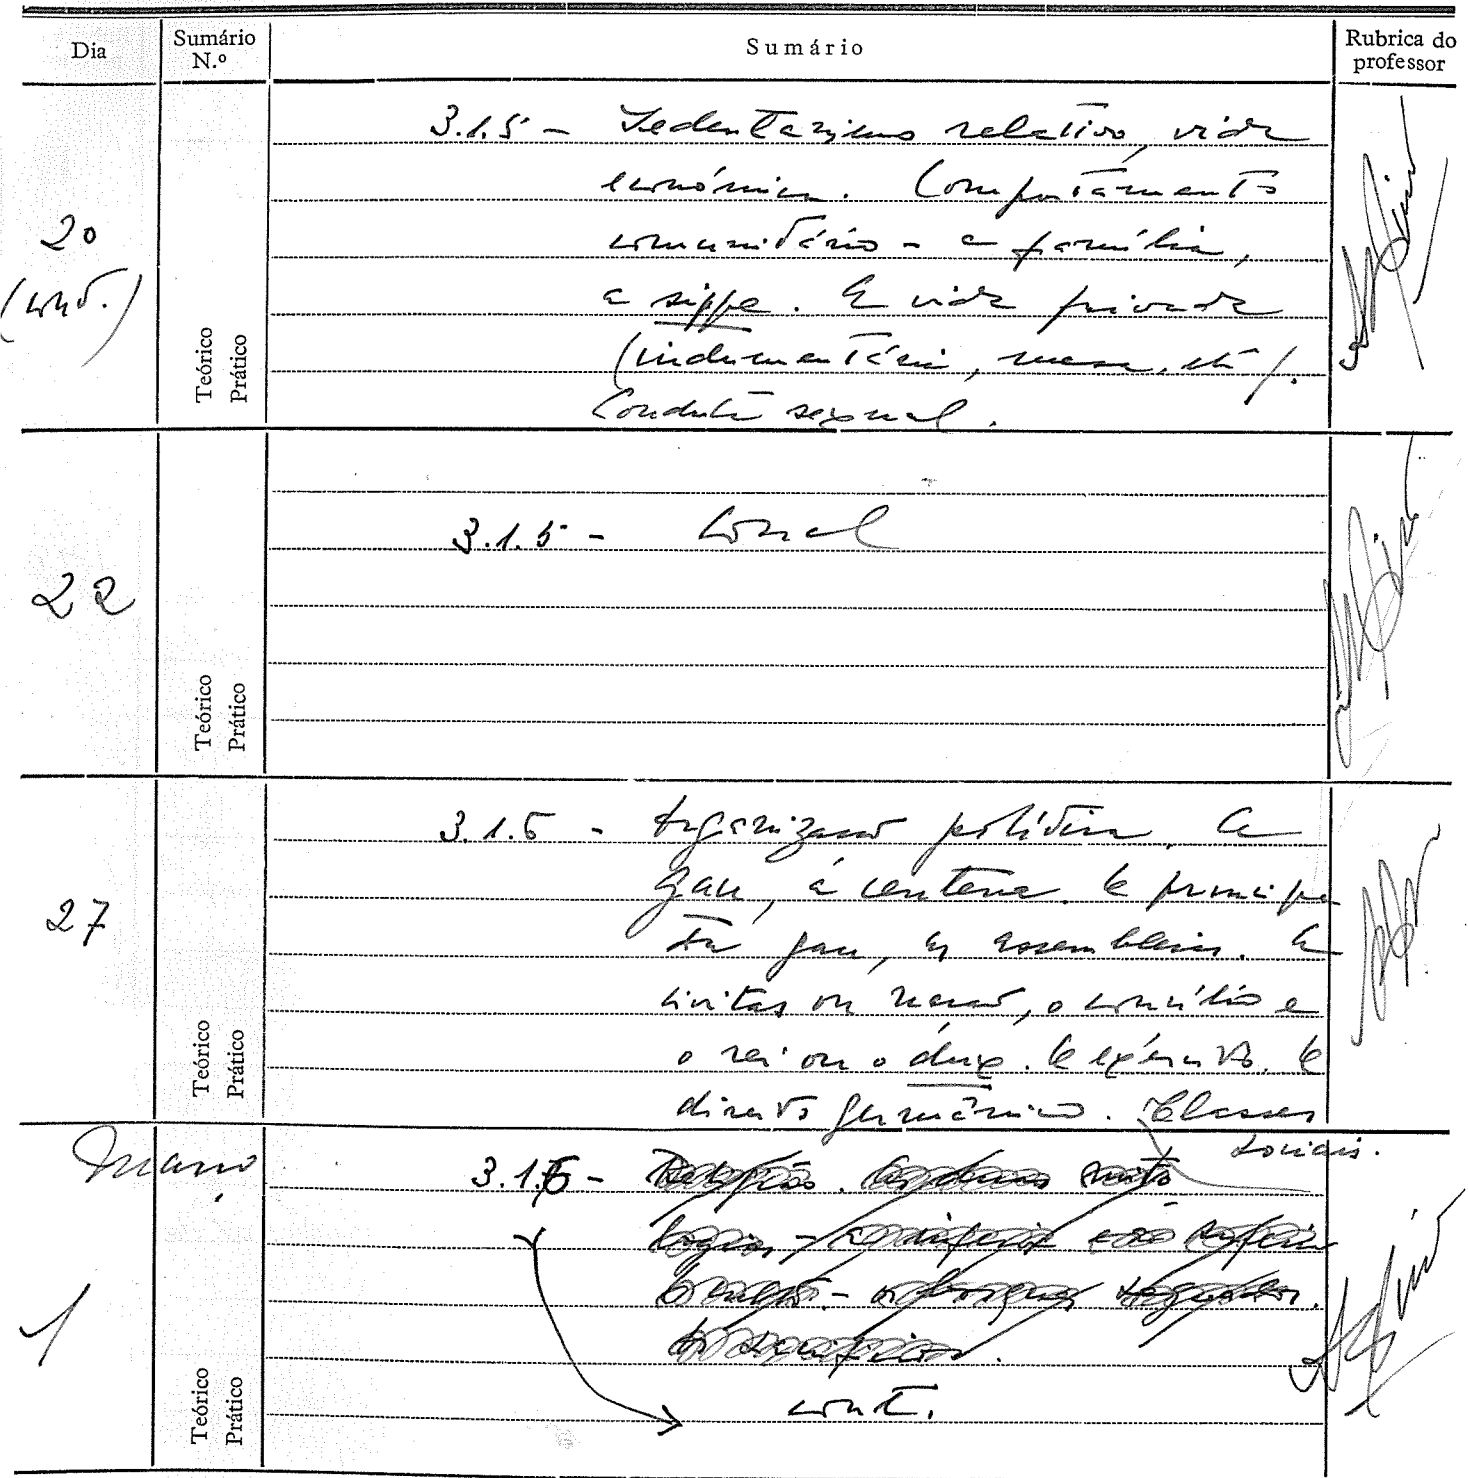 Dia
Sumário N.º
Sumário
Rubrica do professor
20
(cont.)
Teórico
Prático
3.1.5 - Sedentarismo relativo, vida
económica. Comportamento
comunitário - a família,
a sippe. A vida privada
(indumentária, mesa, etc).
Conduta sexual.
22
Teórico
Prático
3.1.5 - Concl
27
Teórico
Prático
3.1.6 - Organização política. A
gau, a centena. O principe
da gau, as assembleias. A
civitas ou nação, o concílio e
o rei ou o dux. O exército. O
direito germânico. Classes
sociais.
Março
1
Teórico
Prático
3.1.6 -
cont.